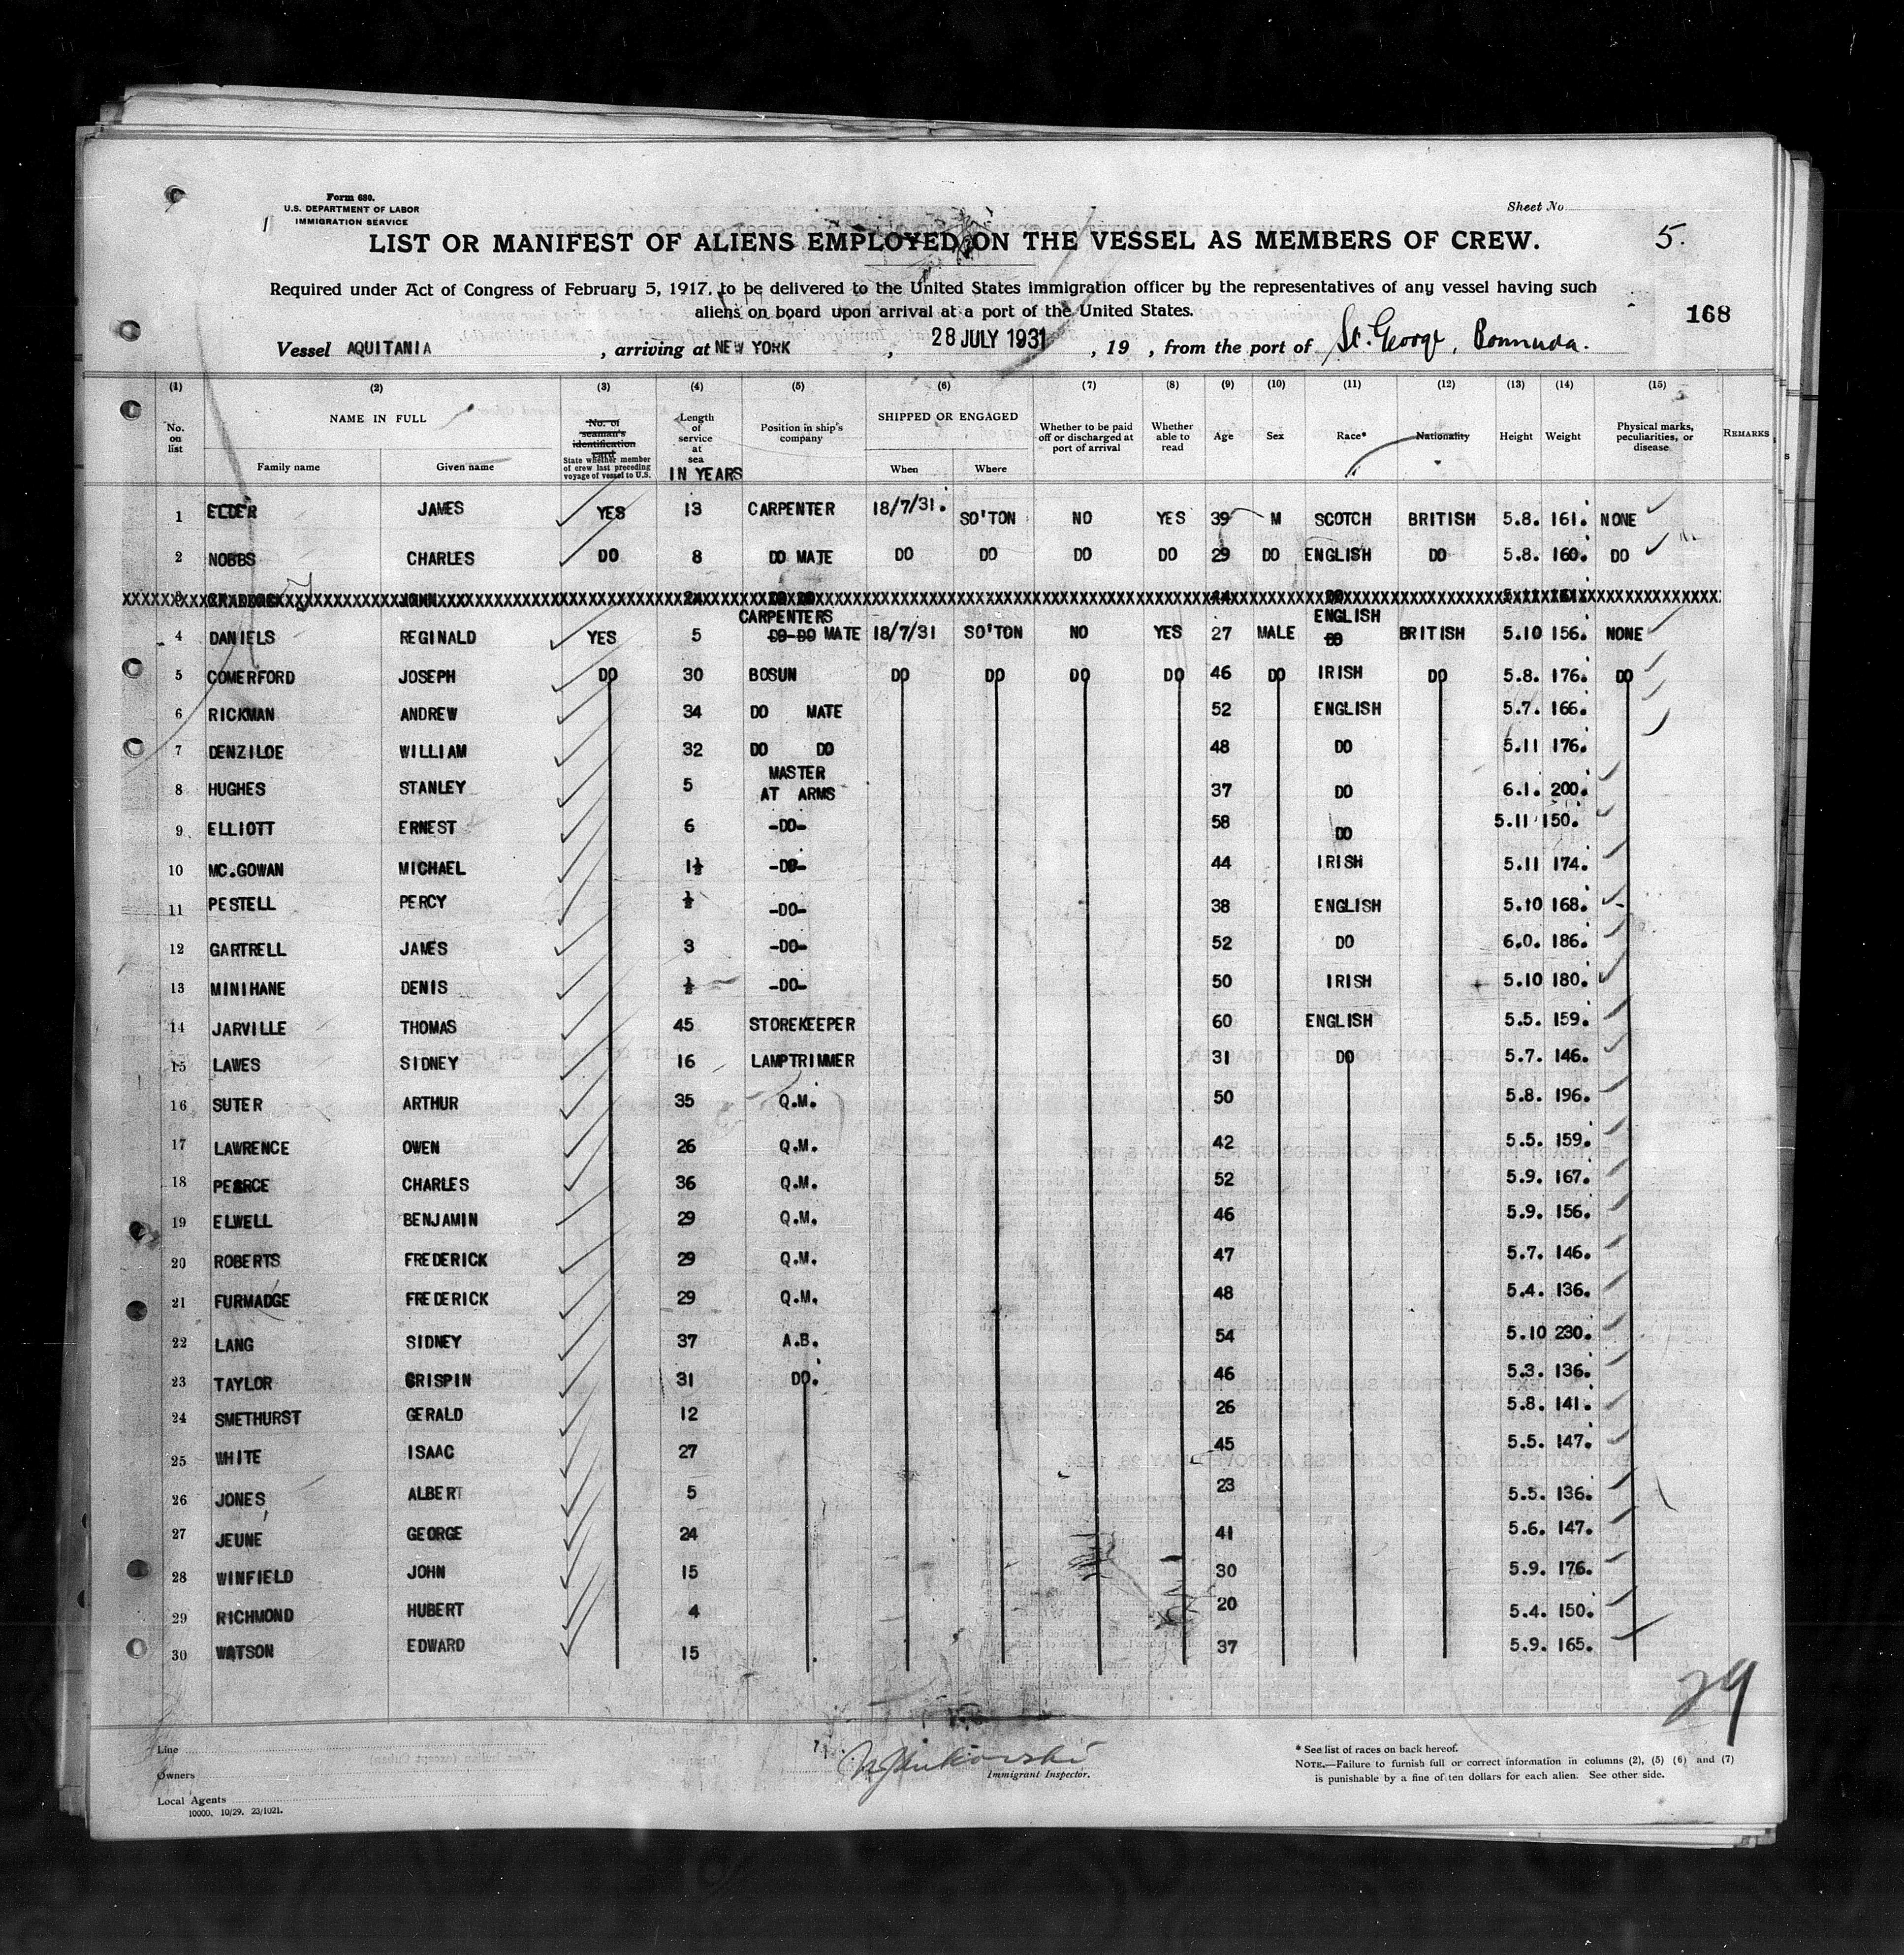 Form 680.
U.S. DEPARTMENT OF LABOR
IMMIGRATION SERVICE
Sheet No.
LIST OR MANIFEST OF ALIENS EMPLOYED ON THE VESSEL AS MEMBERS OF CREW.
5.
Required under Act of Congress of February 5, 1917, to be delivered to the United States immigration officer by the representatives of any vessel having such
aliens on board upon arrival at a port of the United States.
168
Vessel AQUITANIA, arriving at NEW YORK, 28 JULY 1931, 19 , from the port of St. George, Bermuda.
(1) (2) (3) (4) (5) (6) (7) (8) (9) (10) (11) (12) (13) (14) (15)
No. on list NAME IN FULL Family name Given name No. of seaman's identification card State whether member of crew last preceding voyage of vessel to U.S. Length of service at sea IN YEARS Position in ship's company SHIPPED OR ENGAGED When Where Whether to be paid off or discharged at port of arrival Whether able to read Age Sex Race* Nationality Height Weight Physical marks, peculiarities, or disease REMARKS
1 ELDER JAMES YES 13 CARPENTER 18/7/31. SO'TON NO YES 39 M SCOTCH BRITISH 5.8. 161. NONE
2 NOBBS CHARLES DO 8 DO MATE DO DO DO DO 29 DO ENGLISH DO 5.8. 160. DO
3 JOHN
4 DANIELS REGINALD YES 5 CARPENTERS DO-DO MATE 18/7/31 SO'TON NO YES 27 MALE ENGLISH DO BRITISH 5.10 156. NONE
5 COMERFORD JOSEPH DO 30 BOSUN DO DO DO DO 46 DO IRISH DO 5.8. 176. DO
6 RICKMAN ANDREW 34 DO MATE 52 ENGLISH 5.7. 166.
7 DENZILOE WILLIAM 32 DO DO 48 DO 5.11 176.
8 HUGHES STANLEY 5 MASTER AT ARMS 37 DO 6.1. 200.
9 ELLIOTT ERNEST 6 -DO- 58 DO 5.11 150.
10 MC.GOWAN MICHAEL 1½ -DO- 44 IRISH 5.11 174.
11 PESTELL PERCY ½ -DO- 38 ENGLISH 5.10 168.
12 GARTRELL JAMES 3 -DO- 52 DO 6.0. 186.
13 MINIHANE DENIS ½ -DO- 50 IRISH 5.10 180.
14 JARVILLE THOMAS 45 STOREKEEPER 60 ENGLISH 5.5. 159.
15 LAWES SIDNEY 16 LAMPTRIMMER 31 DO 5.7. 146.
16 SUTER ARTHUR 35 Q.M. 50 5.8. 196.
17 LAWRENCE OWEN 26 Q.M. 42 5.5. 159.
18 PEARCE CHARLES 36 Q.M. 52 5.9. 167.
19 ELWELL BENJAMIN 29 Q.M. 46 5.9. 156.
20 ROBERTS FREDERICK 29 Q.M. 47 5.7. 146.
21 FURMADGE FREDERICK 29 Q.M. 48 5.4. 136.
22 LANG SIDNEY 37 A.B. 54 5.10 230.
23 TAYLOR CRISPIN 31 DO. 46 5.3. 136.
24 SMETHURST GERALD 12 26 5.8. 141.
25 WHITE ISAAC 27 45 5.5. 147.
26 JONES ALBERT 5 23 5.5. 136.
27 JEUNE GEORGE 24 41 5.6. 147.
28 WINFIELD JOHN 15 30 5.9. 176.
29 RICHMOND HUBERT 4 20 5.4. 150.
30 WATSON EDWARD 15 37 5.9. 165.
29
Line
Owners
Local Agents
10000, 10/29. 23/1021.
Immigrant Inspector.
* See list of races on back hereof.
NOTE.—Failure to furnish full or correct information in columns (2), (5) (6) and (7)
is punishable by a fine of ten dollars for each alien. See other side.